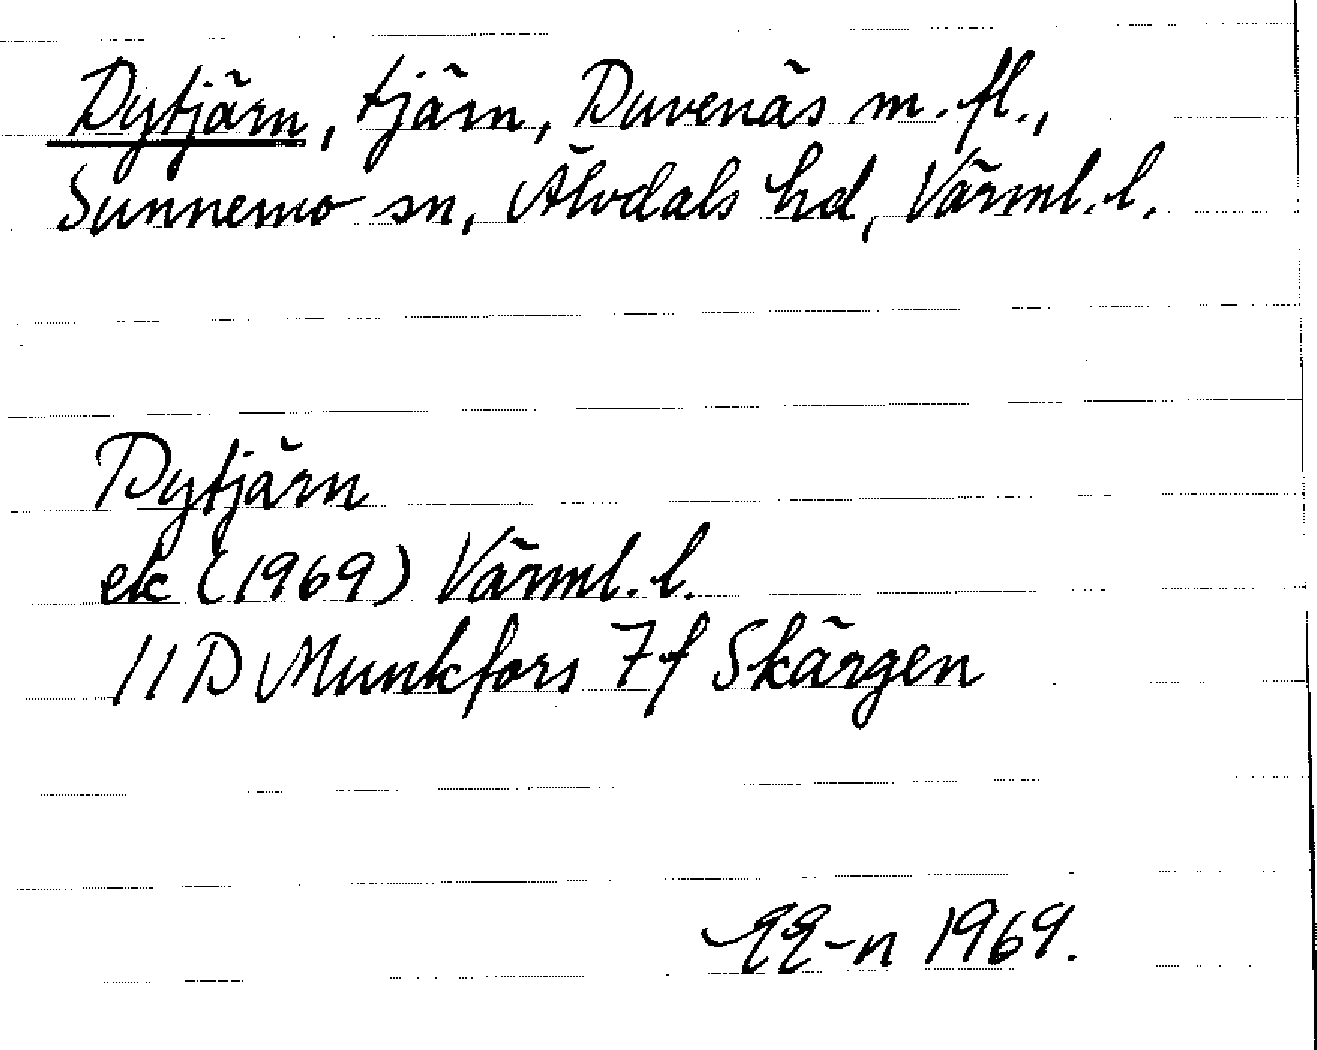 Dytjärn, tjärn, Duvenäs m. fl.,
Sunnemo sn, Älvdals hd, Värml. l.
Dytjärn
ek (1969) Värml. l.
11 D Munkfors 7 f Skärgen
1969.